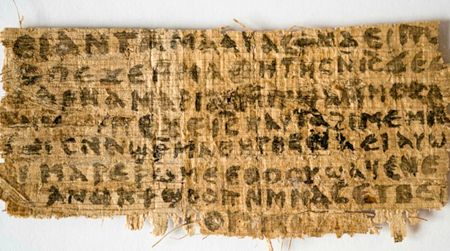 ⲉⲓ ⲁⲛ ⲧⲁⲙⲁⲁⲩ ⲁⲥϯ ⲛⲁⲉⲓ ⲡ
ⲡⲉϫⲉ ⲙⲙⲁⲑⲏⲧⲏⲥ ⲛⲓⲥ ϫⲉ
ⲁⲣⲛⲁ ⲙⲁⲣⲓⲁⲙ
ⲡⲉϫⲉ ⲓⲥ ⲛⲁⲩ ⲧⲁϩⲓⲙⲉ ⲙⲛ
ⲥⲛⲁϣⲣⲙⲁⲑⲏⲧⲏⲥ ⲛⲁⲉⲓ ⲁⲩⲱ
ⲓ ⲙⲁⲣⲉⲣⲱⲙⲉ ⲉⲑⲟⲟⲩ ϣⲁϥⲉ ⲛⲉ
ⲁⲛⲟⲕ ϯϣⲟⲟⲡ ⲛⲙⲙⲁⲥ ⲉⲧⲃⲉ